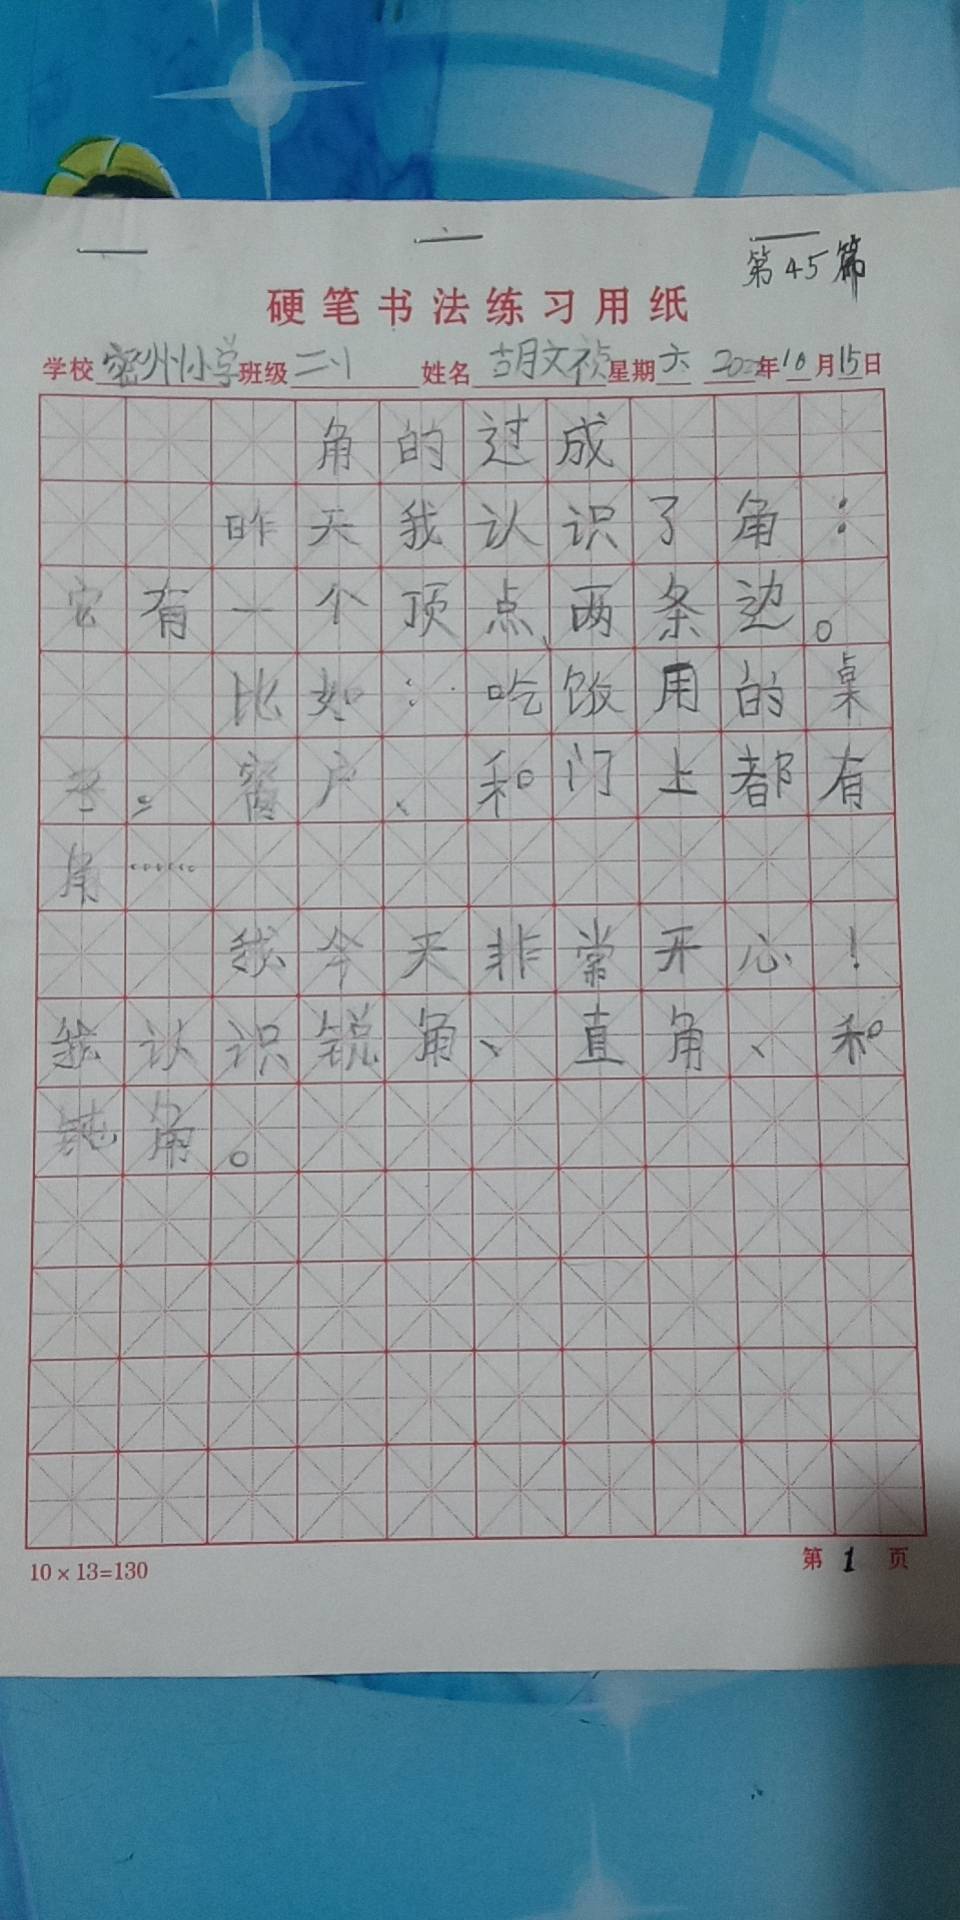 第45篇
硬笔书法练习用纸
学校密州小学班级二1 姓名胡文祯星期六 2022年10月15日
角的过成
昨天我认识了角：
它有一个顶点、两条边。
比如：吃饭用的桌
子。窗户、和门上都有
角……
我今天非常开心！
我认识锐角、直角、和
钝角。
10×13=130
第1页